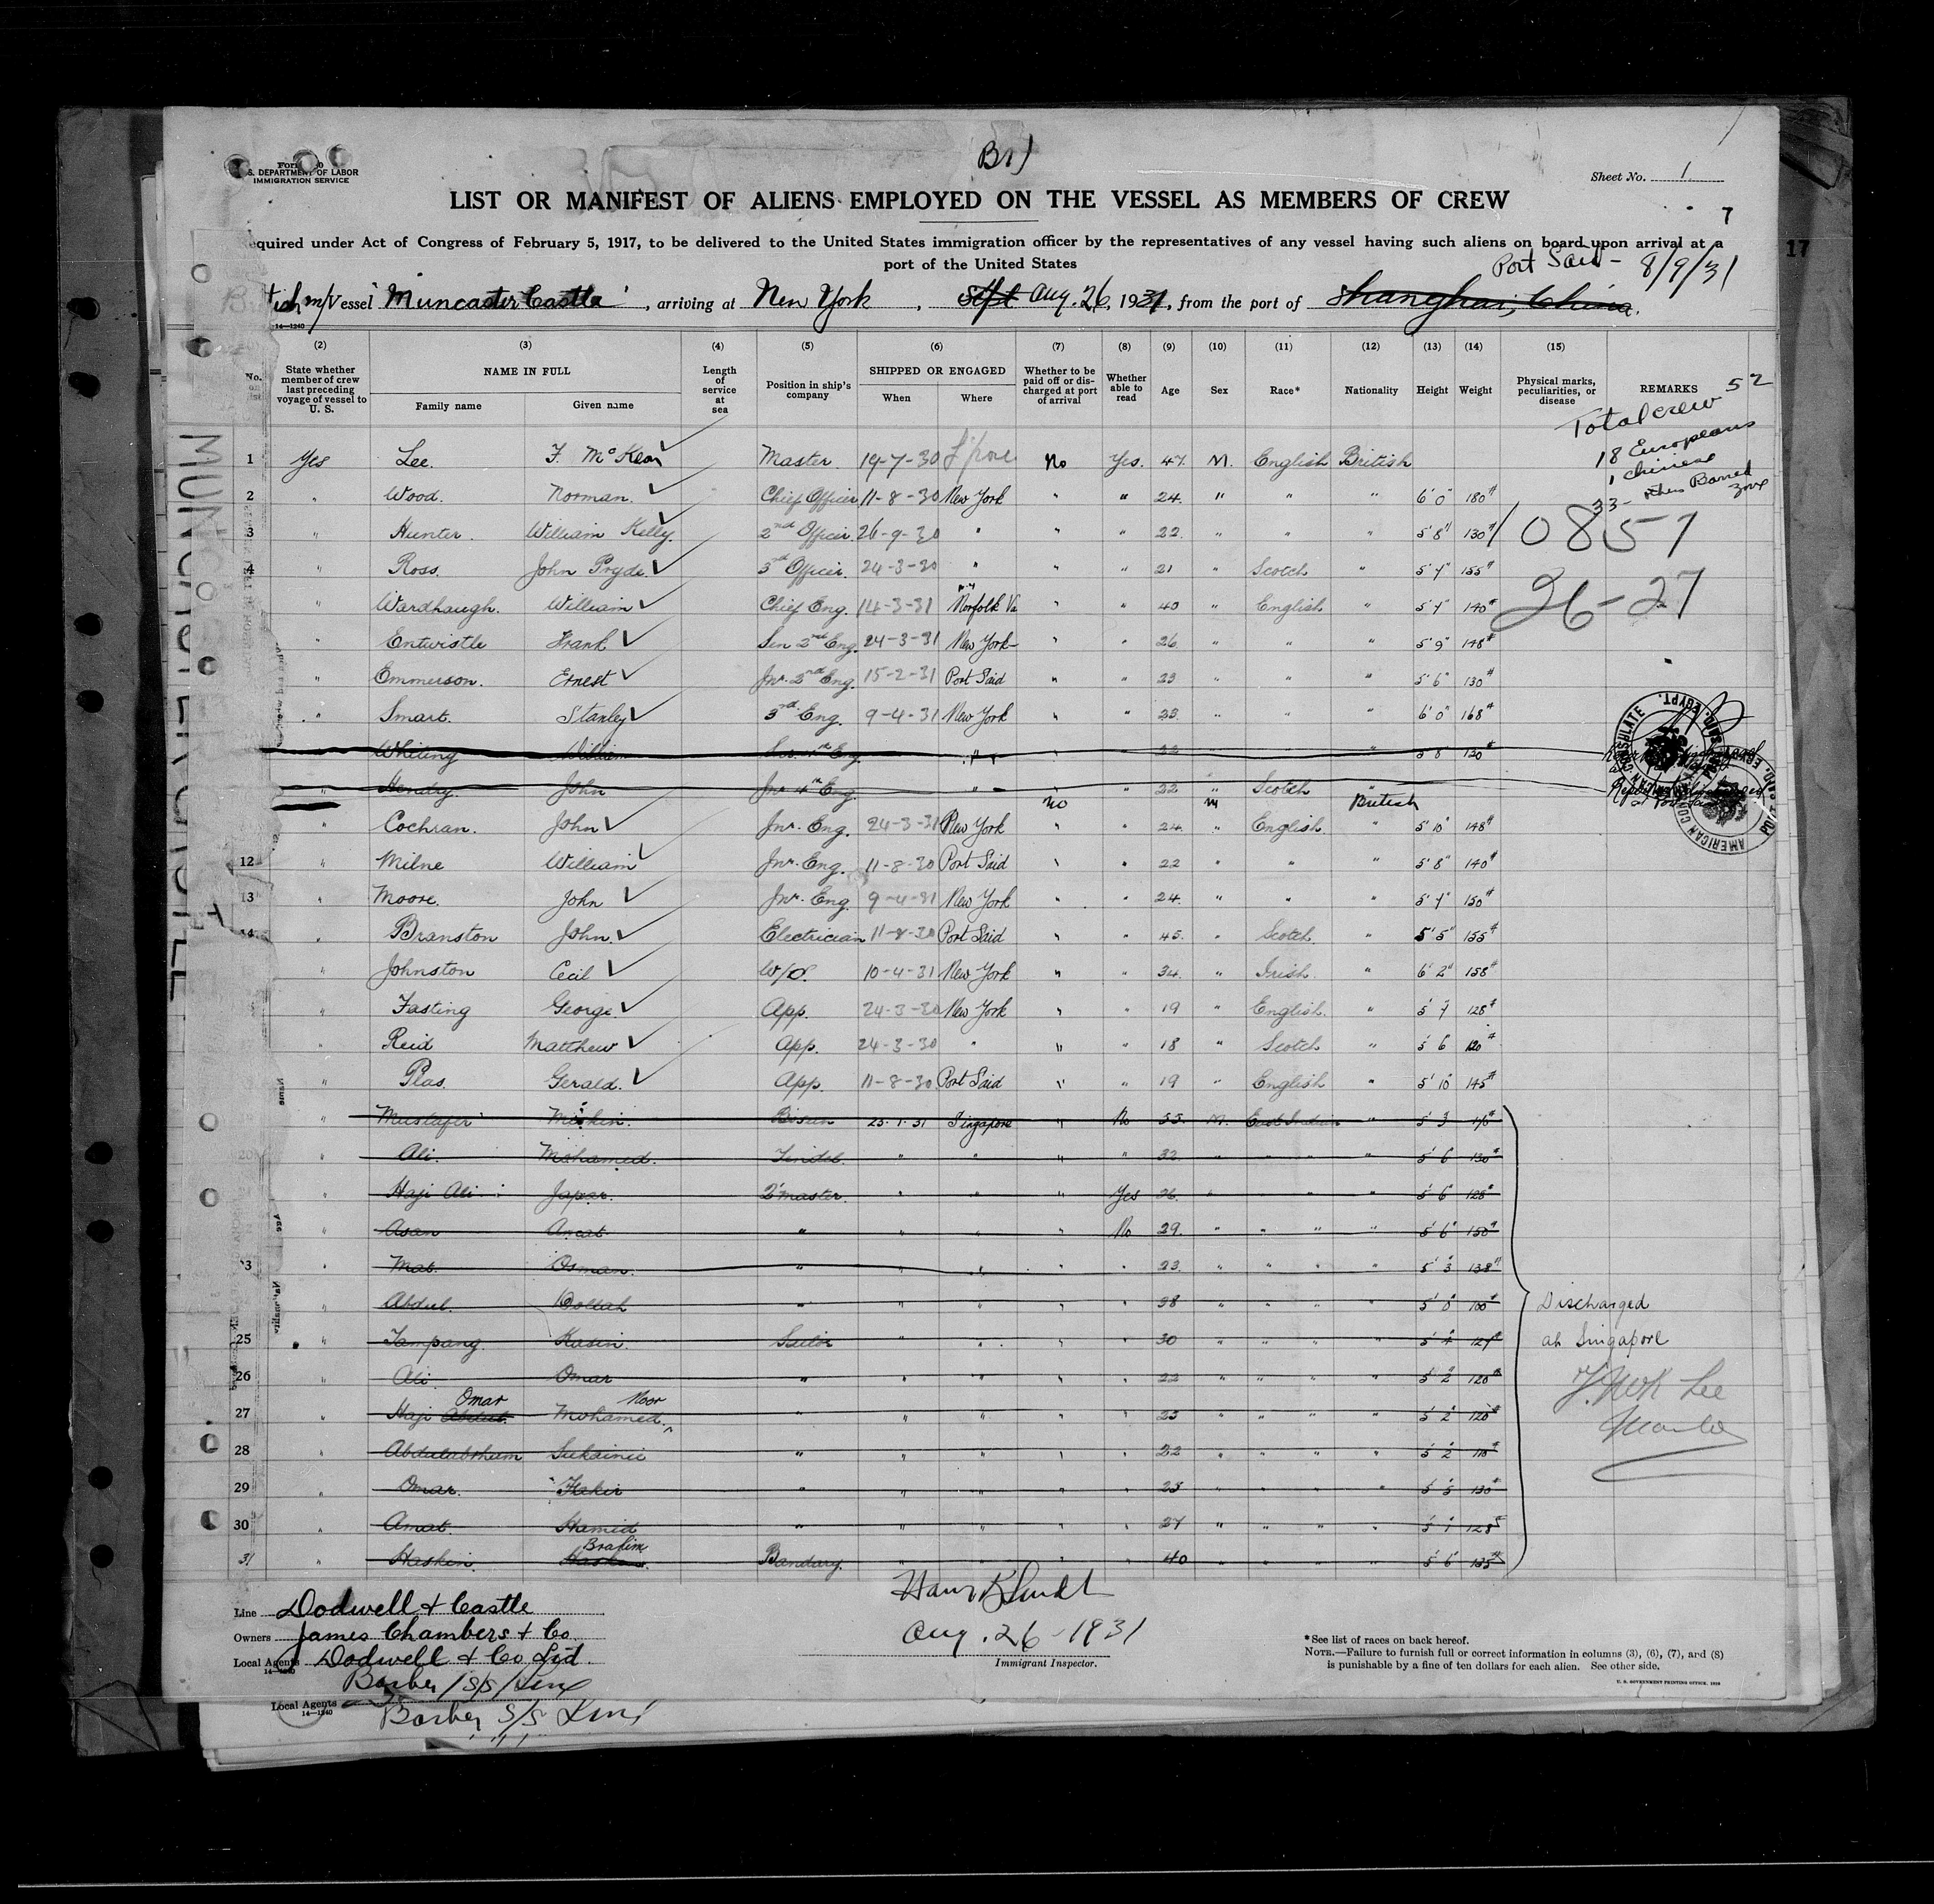 Br)
Form 680
S. DEPARTMENT OF LABOR
IMMIGRATION SERVICE
Sheet No. 1
LIST OR MANIFEST OF ALIENS EMPLOYED ON THE VESSEL AS MEMBERS OF CREW
7
17
equired under Act of Congress of February 5, 1917, to be delivered to the United States immigration officer by the representatives of any vessel having such aliens on board upon arrival at a
port of the United States
Port Said - 8/9/31
ish m/Vessel "Muncaster Castle", arriving at New York, Sept Aug. 26, 1931, from the port of Shanghai, China.
14—1240
(2) (3) (4) (5) (6) (7) (8) (9) (10) (11) (12) (13) (14) (15)
No. State whether member of crew last preceding voyage of vessel to U. S. NAME IN FULL Family name Given name Length of service at sea Position in ship's company SHIPPED OR ENGAGED When Where Whether to be paid off or discharged at port of arrival Whether able to read Age Sex Race* Nationality Height Weight Physical marks, peculiarities, or disease REMARKS
Total crew 52
18 Europeans
1 Chinese
33 - others Barred zone
1 Yes Lee. F. McKean Master. 19-7-30 L'pool No Yes. 47. M. English British
2 " Wood. Norman. Chief Officer 11-8-30 New York " " 24. " " " 6' 0" 180#
3 " Hunter. William Kelly. 2nd Officer 26-9-30 " " " 22. " " " 5' 8" 130#
10857
4 " Ross. John Pryde. 3rd Officer. 24-3-30 " " " 21 " Scotch " 5' 7" 155#
" Wardhaugh. William Chief Eng. 14-3-31 Norfolk Va " " 40 " English " 5' 7" 140#
26-27
" Entwistle Frank Sen 2nd Eng. 24-3-31 New York " " 26 " " " 5' 9" 148#
" Emmerson. Ernest Jnr. 2nd Eng. 15-2-31 Port Said " " 23 " " " 5' 6" 130#
" Smart. Stanley 3rd Eng. 9-4-31 New York " " 23. " " " 6' 0" 168#
" Whiting William 4th Eng. " " " 22 " " 5' 8" 130#
" Hendry. John Jnr 4th Eng. " " " 22 " Scotch "
AMERICAN CONSULATE PORT SAID, EGYPT.
" Cochran. John Jnr. Eng. 24-3-31 New York No " 24. M English. British 5' 10" 148#
12 " Milne William Jnr. Eng. 11-8-30 Port Said " " 22 " " " 5' 8" 140#
13 " Moore. John Jnr. Eng. 9-4-31 New York " " 24. " " " 5' 7" 150#
14 " Branston John. Electrician 11-8-30 Port Said " " 45. " Scotch " 5' 5" 155#
" Johnston Cecil W/O. 10-4-31 New York " " 34. " Irish. " 6' 2" 158#
" Fasting George. App. 24-3-30 New York " " 19 " English. " 5' 7" 128#
" Reid Matthew App. 24-3-30 " " " 18 " Scotch " 5' 6 120#
" Plas. Gerald. App. 11-8-30 Port Said " " 19 " English " 5' 10" 145#
" Mustafer Miskin. 25.1.31 Singapore " No 55. M. East Indian " 5' 3
" Ali. Mohamed. Tindel. " " " " 32. " " " 5' 6" 130#
" Haji Ali Japar. Q'master. " " " Yes 26. " " " 5' 6" 128#
" Asan Amat " " " " No 29. " " " 5' 6" 150#
" Mat. Osman. " " " " " 23. " " " 5' 3" 138#
" Abdul. " " " " " 38 " " " 5' 0" 100#
25 " Tampang. Kasin. Sailor " " " " 30 " " " 5' 4"
26 " Ali Omar " " " " " 22 " " " 5' 2" 120#
27 " Haji Abdul. Omar Mohamed. Noor " " " " " 23 " " " 5' 2" 120#
28 " Sukaimi " " " " " 22 " " " 5' 2" 110#
29 " Omar. " " " " " 25 " " " 5' 5" 130#
30 " Amat. Hamid " " " " " 27 " " " 5' 1" 128#
31 " Haskin. Brahim Bandary. " " " " 40 " " " 5' 6" 135#
Discharged
at Singapore
F. McK Lee
Master
Line Dodwell & Castle
Owners James Chambers & Co.
Local Agents Dodwell & Co Ltd.
14—1240
Barber / S/S / Line
Aug. 26-1931
Immigrant Inspector.
*See list of races on back hereof.
NOTE.—Failure to furnish full or correct information in columns (3), (6), (7), and (8)
is punishable by a fine of ten dollars for each alien. See other side.
U. S. GOVERNMENT PRINTING OFFICE. 1929
Local Agents
14—1240
Barber S/S Line
MUNCASTER CASTLE